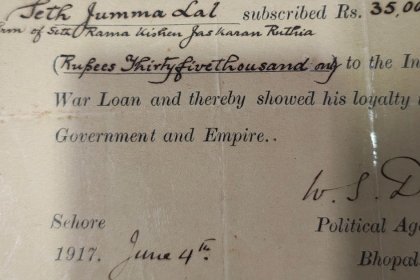 Seth Jumma Lal subscribed Rs. 35,00
of Seth Rama Kishen Jaskaran Ruthia
(Rupees Thirtyfivethousand only) to the In
War Loan and thereby showed his loyalty
Government and Empire..
W. S. D
Sehore Political Ag
1917. June 4th. Bhopal